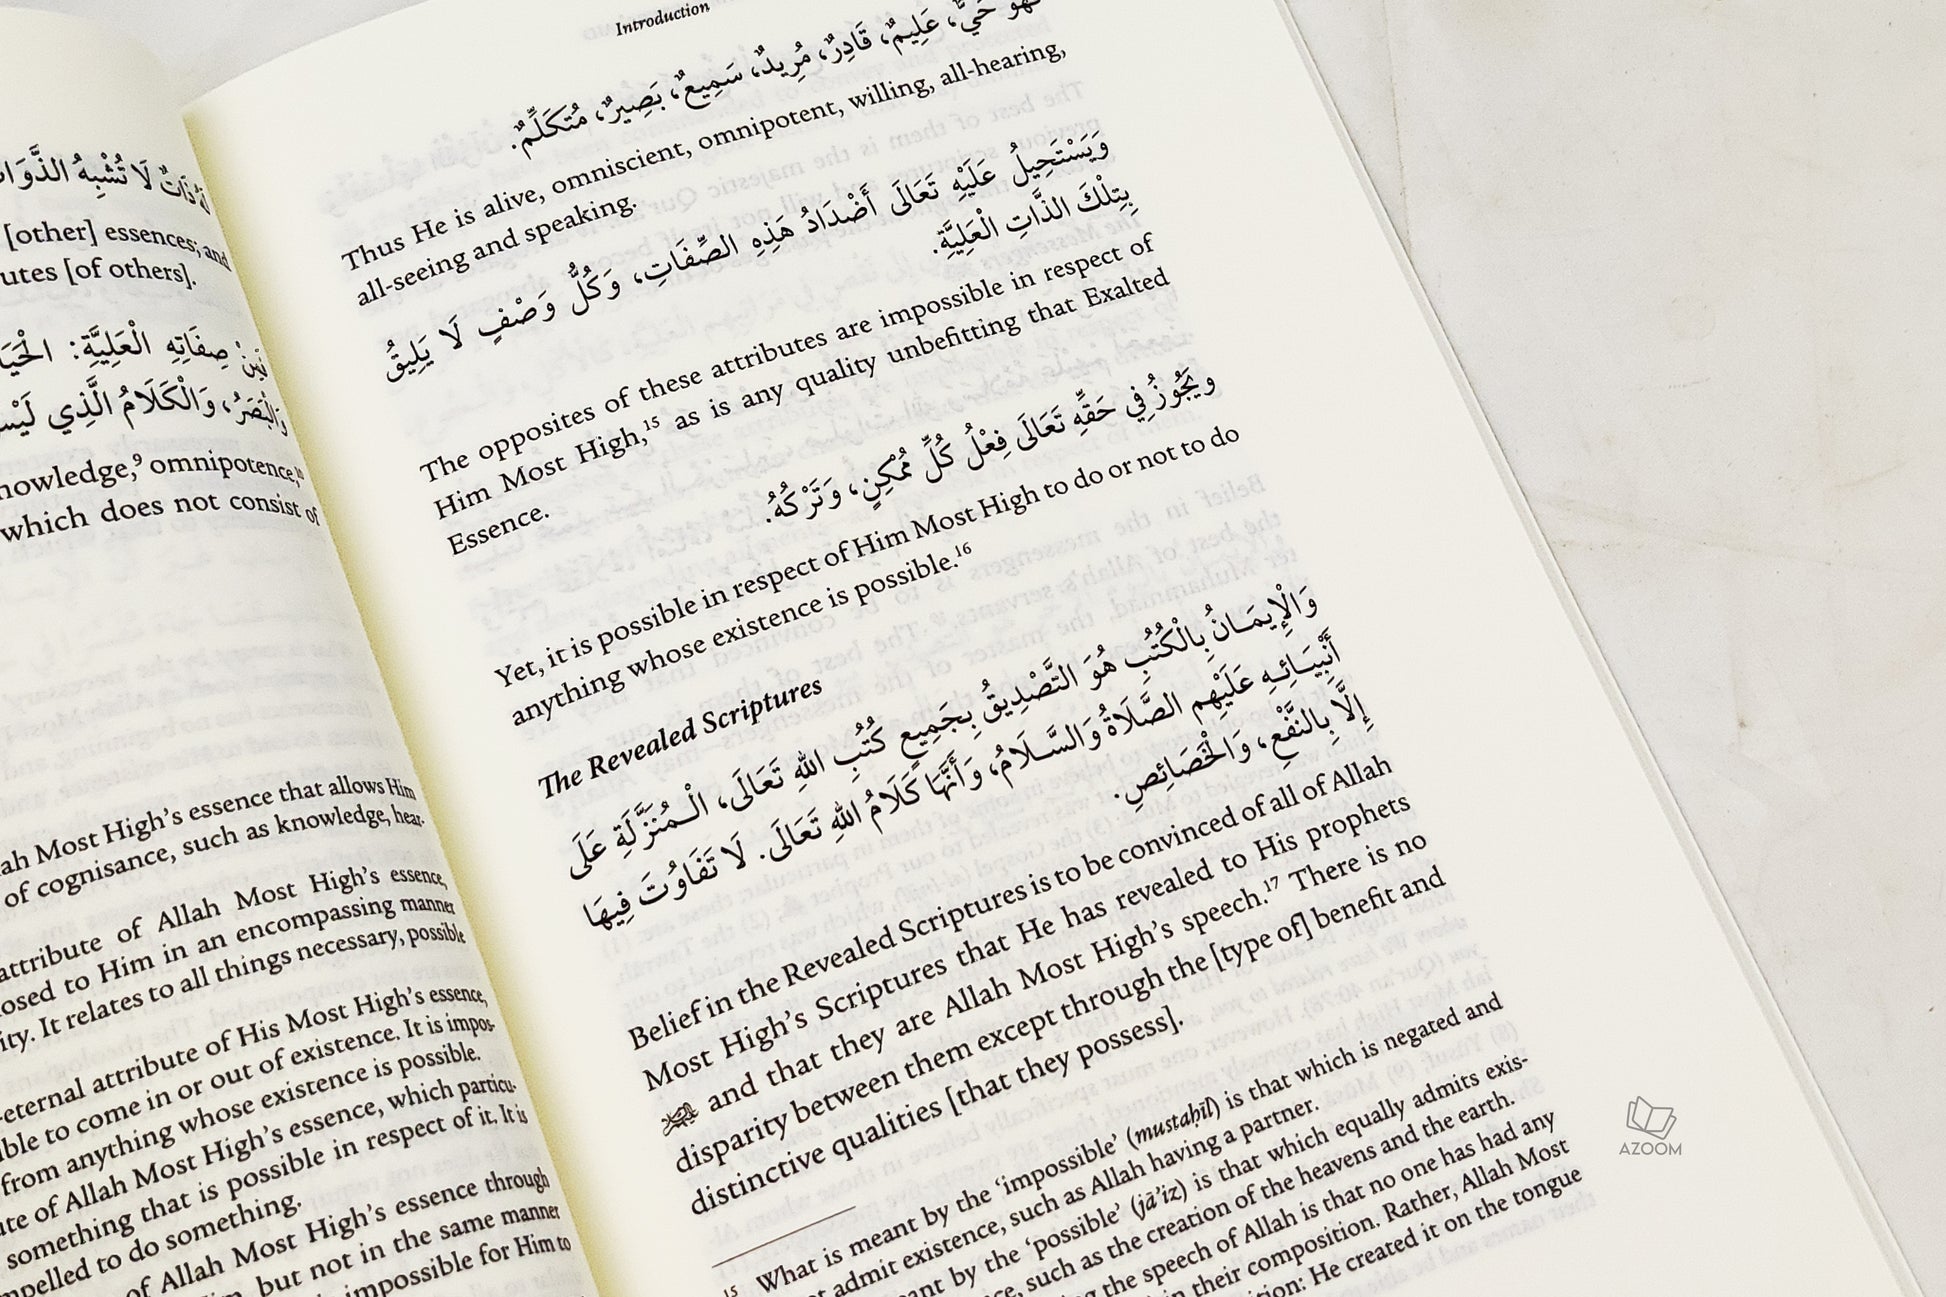 لَا تُشْبِهُ الذَّوَاتِ
[other] essences; and
utes [of others].
صِفَاتِهِ الْعَلِيَّةِ:
وَالْبَصَرُ، وَالْكَلَامُ الَّذِي
knowledge,⁹ omnipotence,¹⁰
which does not consist of
Most High's essence that allows Him
of cognisance, such as knowledge, hear-
attribute of Allah Most High's essence,
osed to Him in an encompassing manner
ity. It relates to all things necessary, possible
-eternal attribute of His Most High's essence,
ible to come in or out of existence. It is impos-
from anything whose existence is possible.
ute of Allah Most High's essence, which particu-
something that is possible in respect of it. It is
mpelled to do something.
of Allah Most High's essence through
but not in the same manner
impossible for Him to
Introduction
حَيٌّ، عَلِيمٌ، قَادِرٌ، مُرِيدٌ، سَمِيعٌ، بَصِيرٌ، مُتَكَلِّمٌ.
Thus He is alive, omniscient, omnipotent, willing, all-hearing,
all-seeing and speaking.
وَيَسْتَحِيلُ عَلَيْهِ تَعَالَى أَضْدَادُ هَذِهِ الصِّفَاتِ، وَكُلُّ وَصْفٍ لَا يَلِيقُ
بِتِلْكَ الذَّاتِ الْعَلِيَّةِ.
The opposites of these attributes are impossible in respect of
Him Most High,¹⁵ as is any quality unbefitting that Exalted
Essence.
ويَجُوزُ فِي حَقِّهِ تَعَالَى فِعْلُ كُلِّ مُمْكِنٍ، وَتَرْكُهُ.
Yet, it is possible in respect of Him Most High to do or not to do
anything whose existence is possible.¹⁶
The Revealed Scriptures
وَالْإِيمَـانُ بِالْكُتُبِ هُوَ التَّصْدِيقُ بِجَمِيعِ كُتُبِ اللهِ تَعَالَى، الْـمُنَزَّلَةِ عَلَى
أَنْبِيَـائِـهِ عَلَيْهِم الصَّلَاةُ وَالسَّـلَامُ، وَأَنَّهَا كَلَامُ اللهِ تَعَالَى. لَا تَفَاوُتَ فِيهَا
إِلَّا بِالنَّفْعِ، وَالْخَصَائِصِ.
Belief in the Revealed Scriptures is to be convinced of all of Allah
Most High's Scriptures that He has revealed to His prophets
and that they are Allah Most High's speech.¹⁷ There is no
disparity between them except through the [type of] benefit and
distinctive qualities [that they possess].
15 What is meant by the 'impossible' (mustaḥīl) is that which is negated and
not admit existence, such as Allah having a partner.
meant by the 'possible' (jā'iz) is that which equally admits exis-
such as the creation of the heavens and the earth.
the speech of Allah is that no one has had any
in their composition. Rather, Allah Most
He created it on the tongue
AZOOM